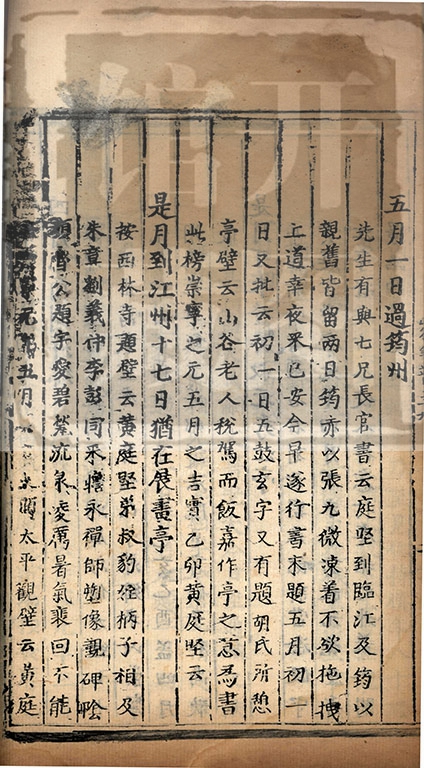 五月一日過筠州
先生有與七兄長官書云庭堅到臨江及筠以
親舊皆留兩日筠亦以張九微凍着不欲拖拽
上道幸夜來已安今早遂行書末題五月初一
日又批云初一日五鼓玄字又有題胡氏所憩
亭壁云山谷老人稅駕而飯嘉作亭之意爲書
此榜崇寧之元五月之吉實己卯黃庭堅云
是月到江州十七日猶在展書亭
按西林寺題壁云黃庭堅弟叔豹姪柄子相及
朱章劉羲仲李彭同來瞻永禪師塑像觀碑陰
顏魯公題字愛碧甃流泉凌厲暑氣裴回不能
元年五月 太平觀壁云黃庭